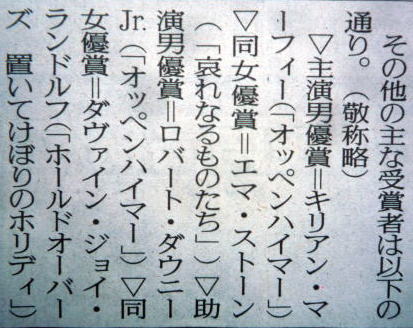 その他の主な受賞者は以下の
通り。(敬称略)
▽主演男優賞＝キリアン・マ
ーフィー(「オッペンハイマー」)
▽同女優賞＝エマ・ストーン
(「哀れなるものたち」)▽助
演男優賞＝ロバート・ダウニー
Jr.(「オッペンハイマー」)▽同
女優賞＝ダヴァイン・ジョイ・
ランドルフ(「ホールドオーバー
ズ 置いてけぼりのホリディ」)